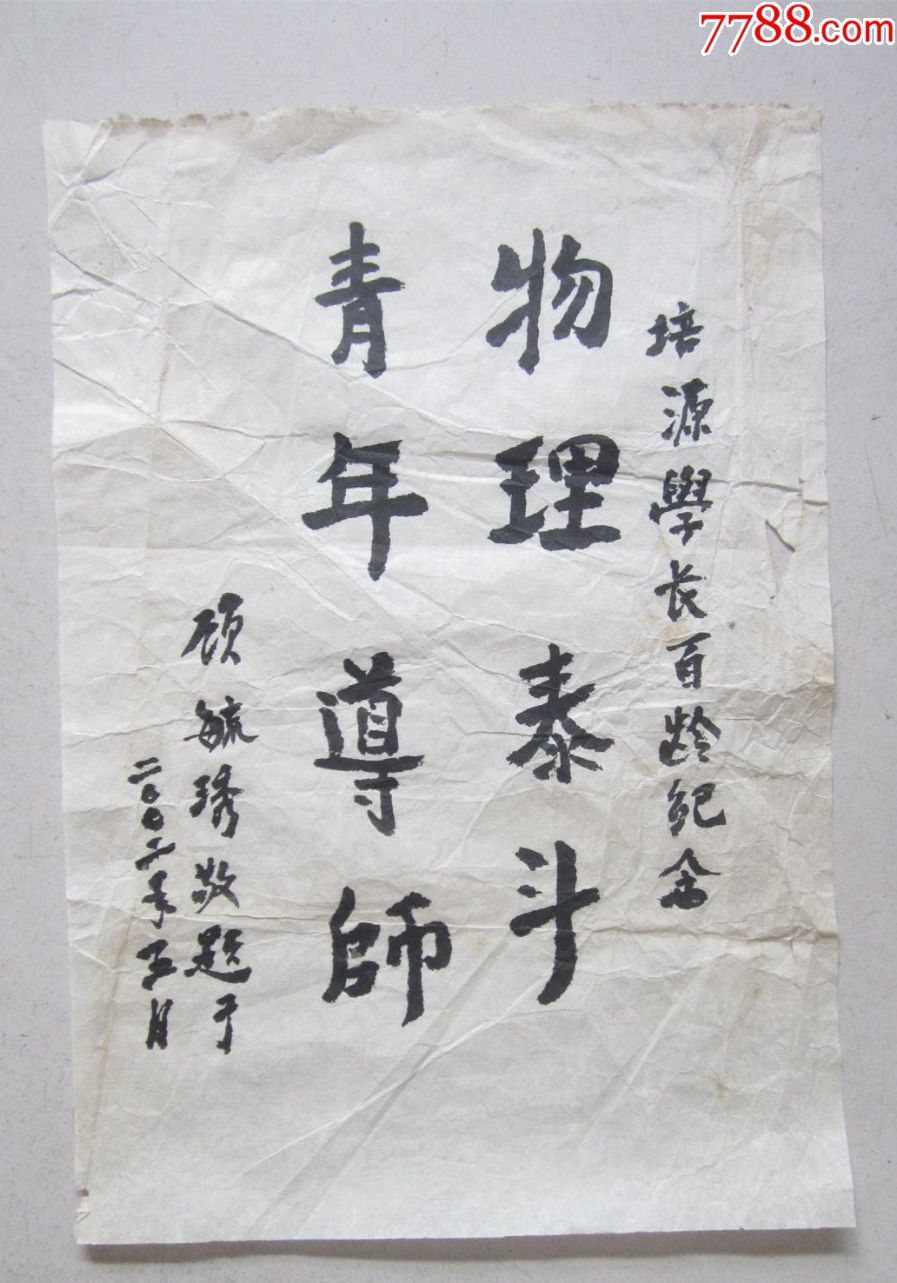 7788.com
培源學长百龄纪念
物理泰斗
青年導師
顾毓琇敬题于
二〇〇二年五月